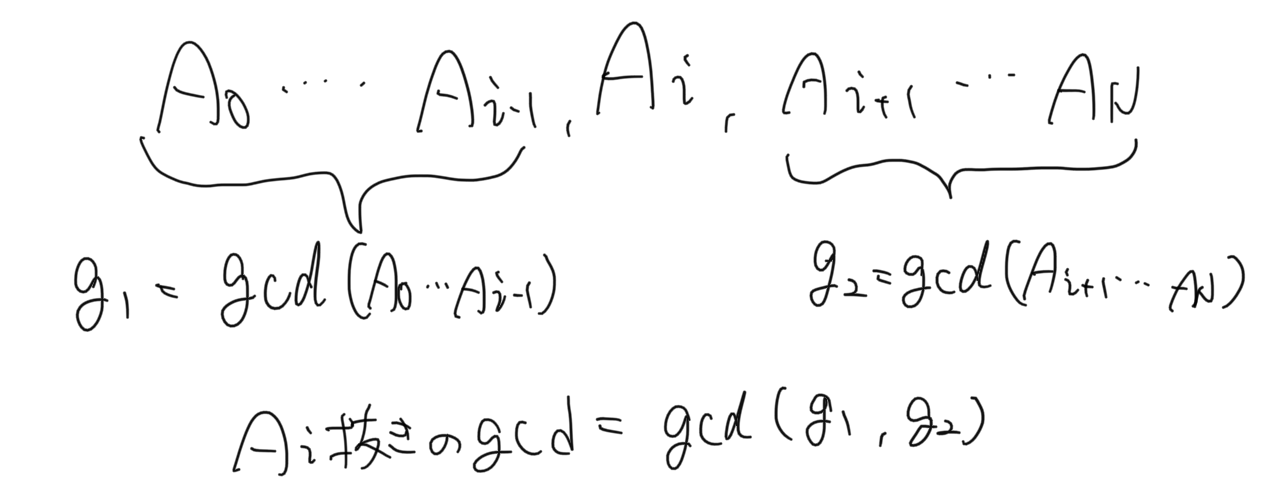 A₀ ‥‥ Aᵢ₋₁ , Aᵢ , Aᵢ₊₁ … A_N
g₁ = gcd (A₀…Aᵢ₋₁) g₂=gcd (Aᵢ₊₁… A_N)
Aᵢ抜きのgcd = gcd (g₁, g₂)